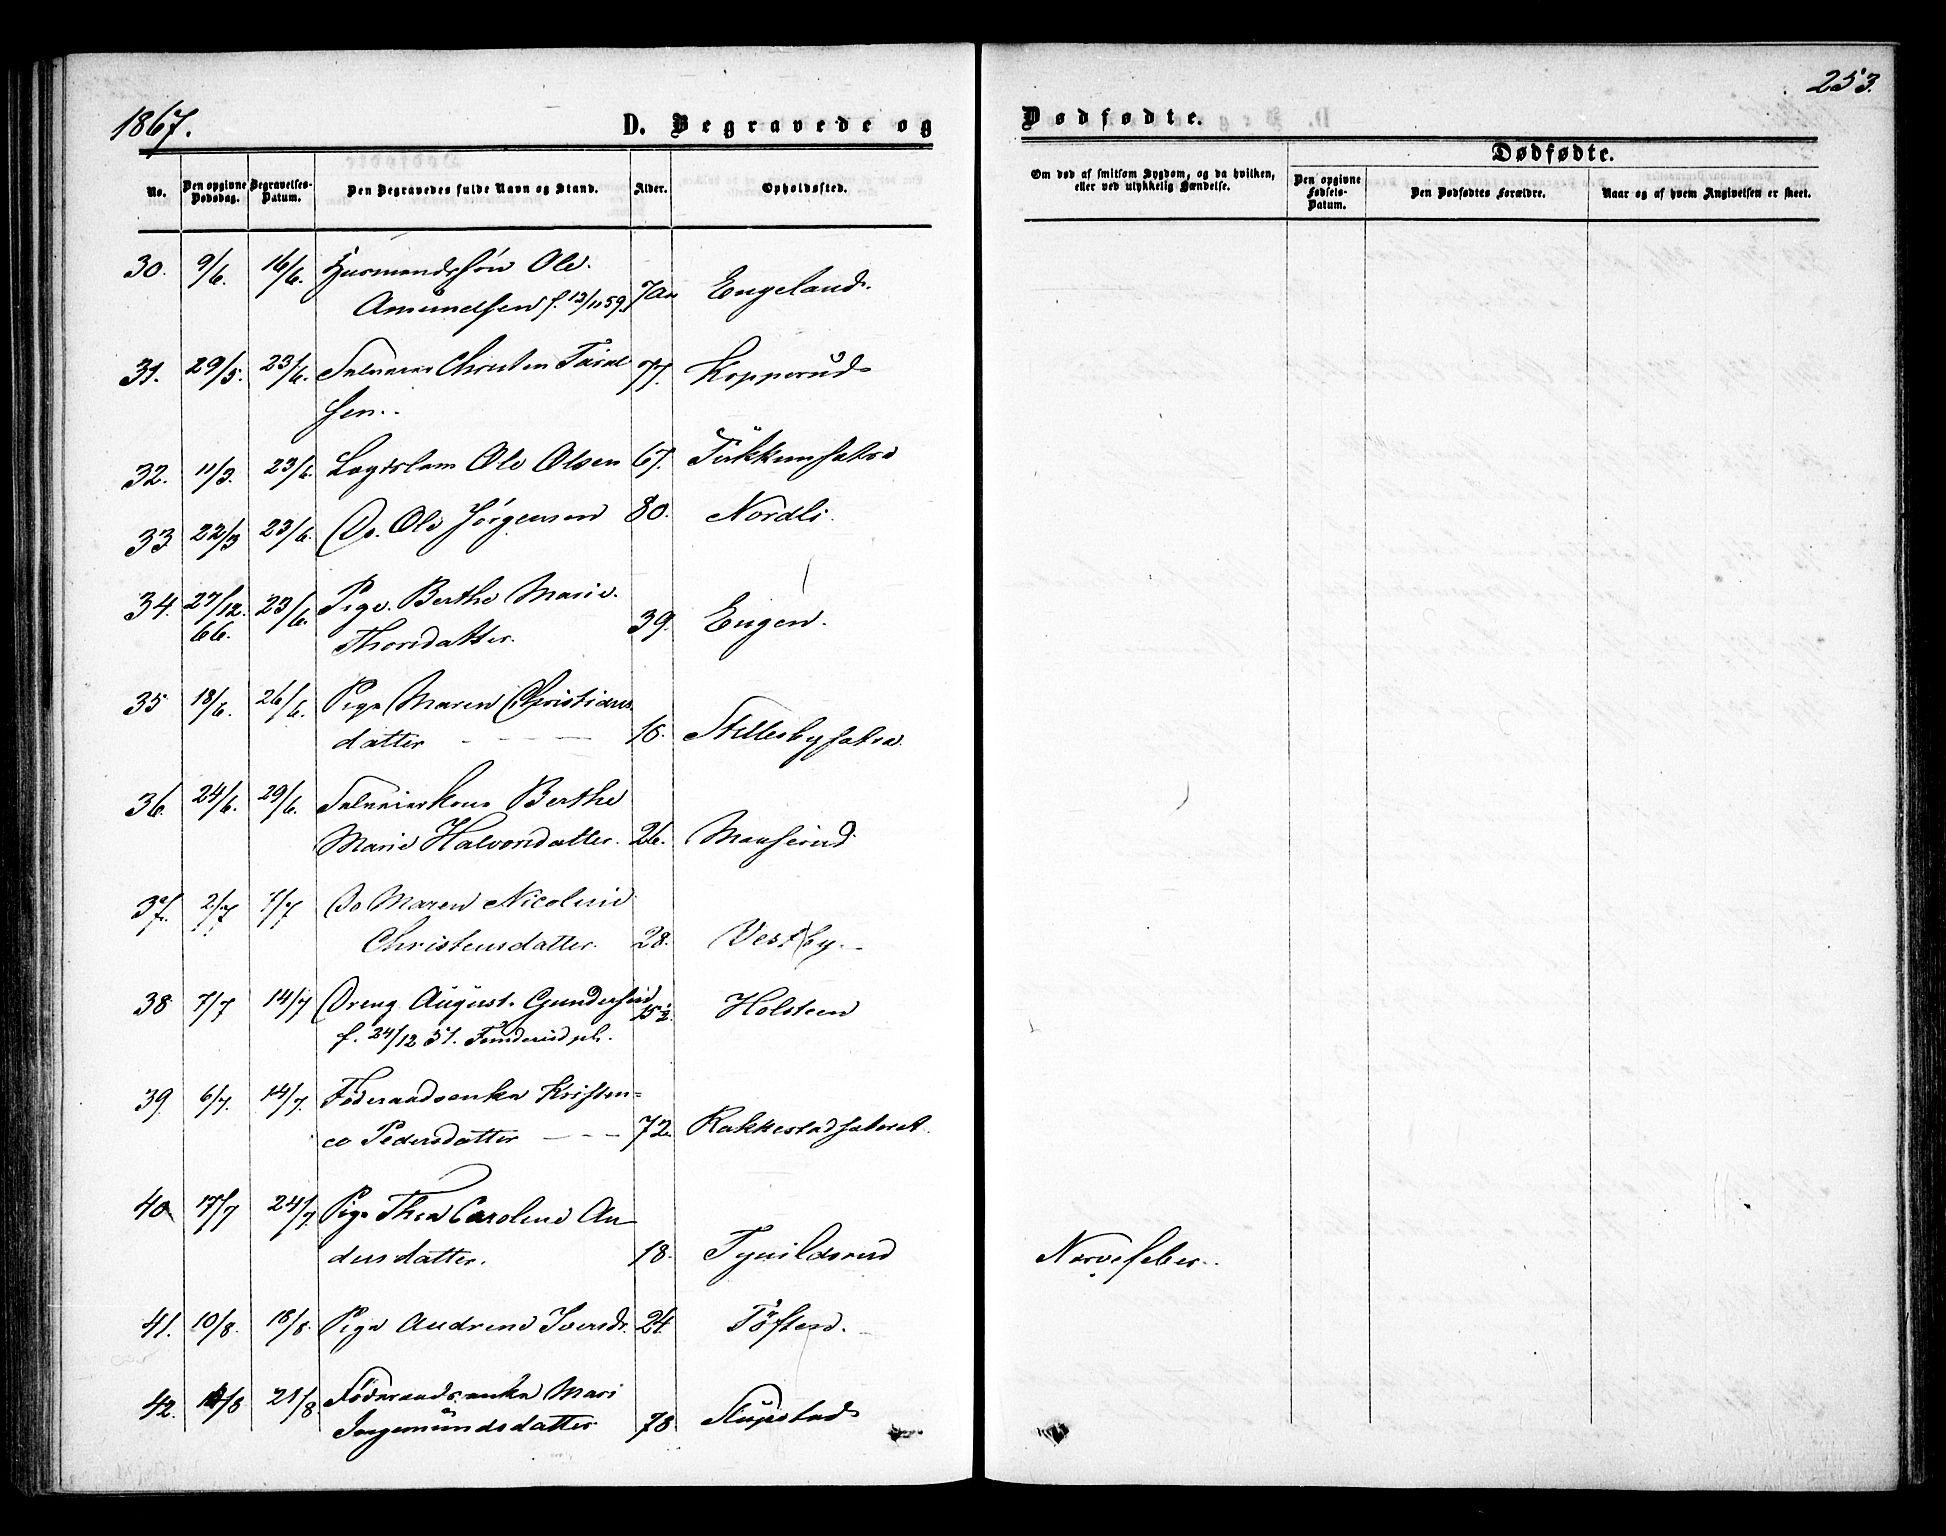 1867.
D. Begravede og
No.
Den opgivne Dødsdag.
Begravelses-Datum.
Den Begravedes fulde Navn og Stand.
Alder.
Opholdssted.
30. 9/6. 16/6. Husmandssøn Ole
Amundsen f. 13/11 59. 7 Aar Engeland.
31. 29/5. 23/6. Selveier Christen Taral 77. Kopperud
sen.
32. 11/3. 23/6. Lægdslem Ole Olsen 67.
33 22/3 23/6. Do. Ole Jørgensen 80. Nordli.
34. 27/12. 23/6. Pige Berthe Marie
66. Thorsdatter. 39. Engen.
35 18/6. 26/6. Pige Maren Christians
datter 16.
36. 24/6. 29/6. Selveierkone Berthe
Marie Halvorsdatter. 26.
37. 2/7 7/7 Do Maren Nicoline
Christensdatter. 28. Vestby.
38 7/7 14/7 Dreng August Gundersen 15½ Holsteen
f. 24/12 51.
39 6/7. 14/7. Føderaadsenke Kristen=
ce Pedersdatter 72. Rakkestadsæteret.
40 17/7 24/7. Pige Thea Caroline An
dersdatter. 18.
41. 10/8. 18/8. Pige Andrine Iversdr. 24. Tøften.
42. 14/8 21/8. Føderaadsenke Mari
Ingemundsdatter 78.
253.
Dødfødte.
Om død af smitsom Sygdom, og da hvilken,
eller ved ulykkelig Hændelse.
Dødfødte.
Den opgivne Fødsels-Datum.
Den Dødfødtes Forældre.
Naar og af hvem Angivelsen er skeet.
Nervefeber.